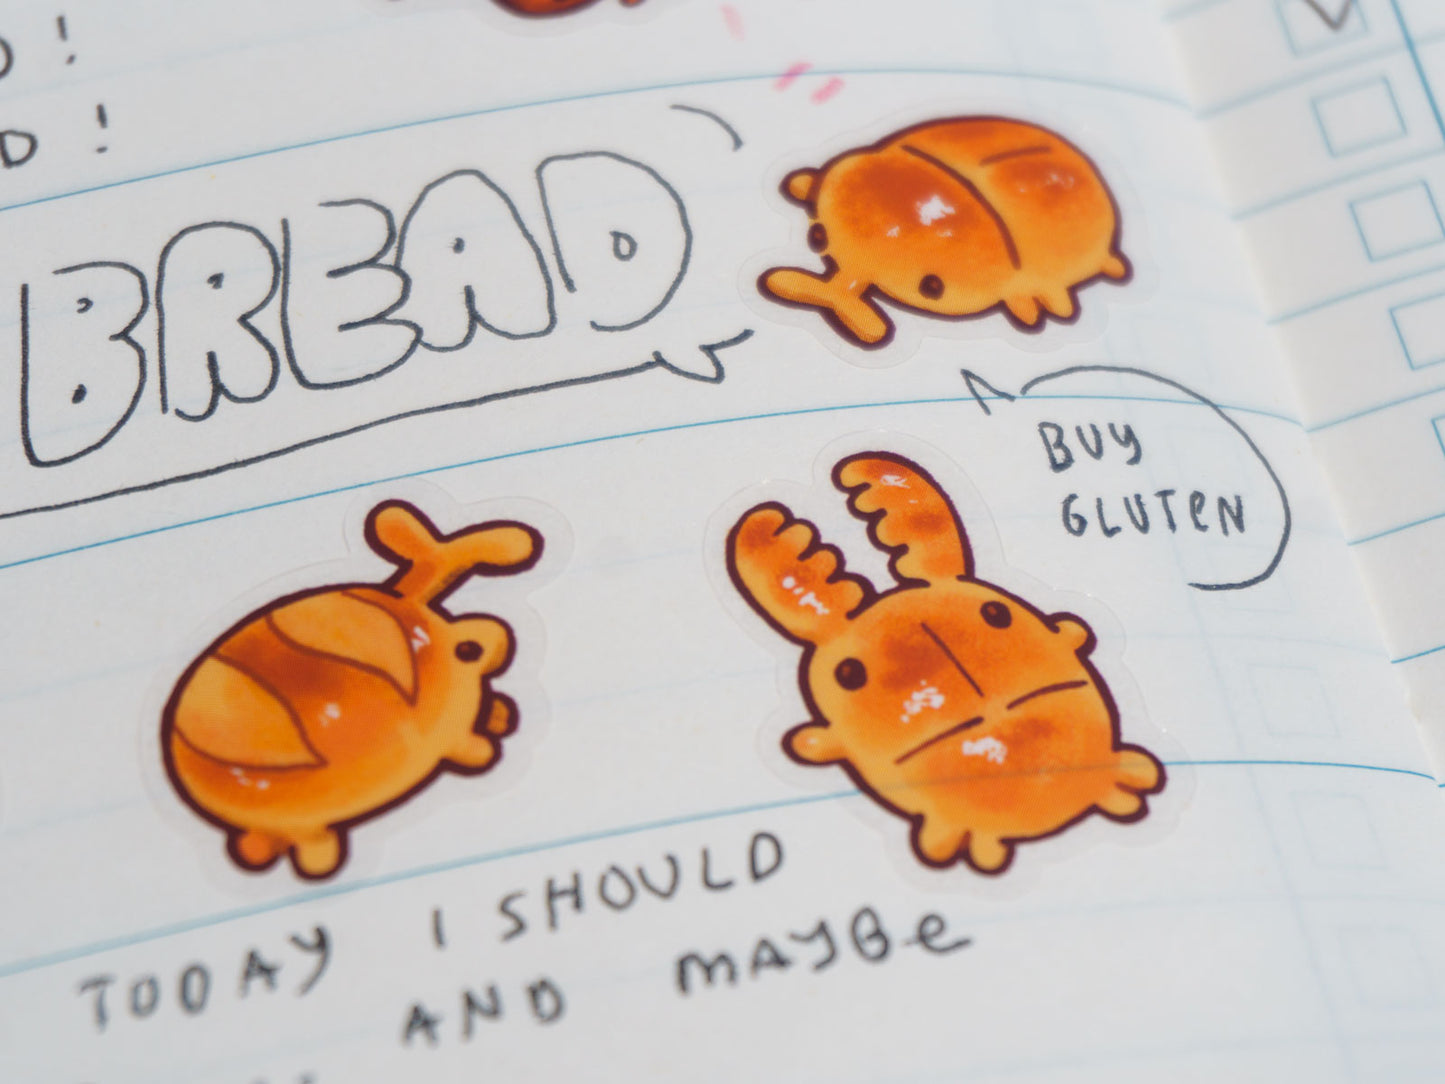 D!
D!
BREAD
BUY
GLUTEN
TODAY I SHOULD
AND MAYBE